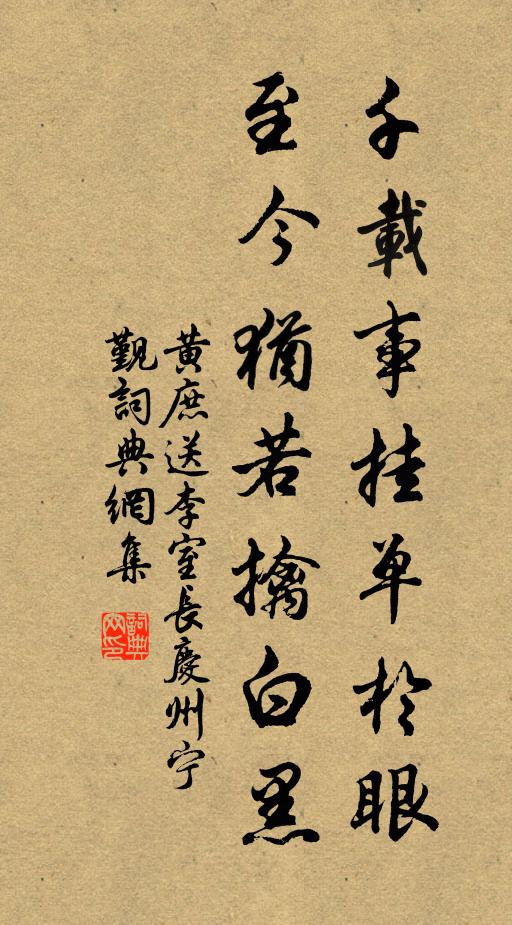 千載事挂单於眼
至今猶若擒白黑
黃庶送李室長慶州宁
覲詞典網集
詞典
网印